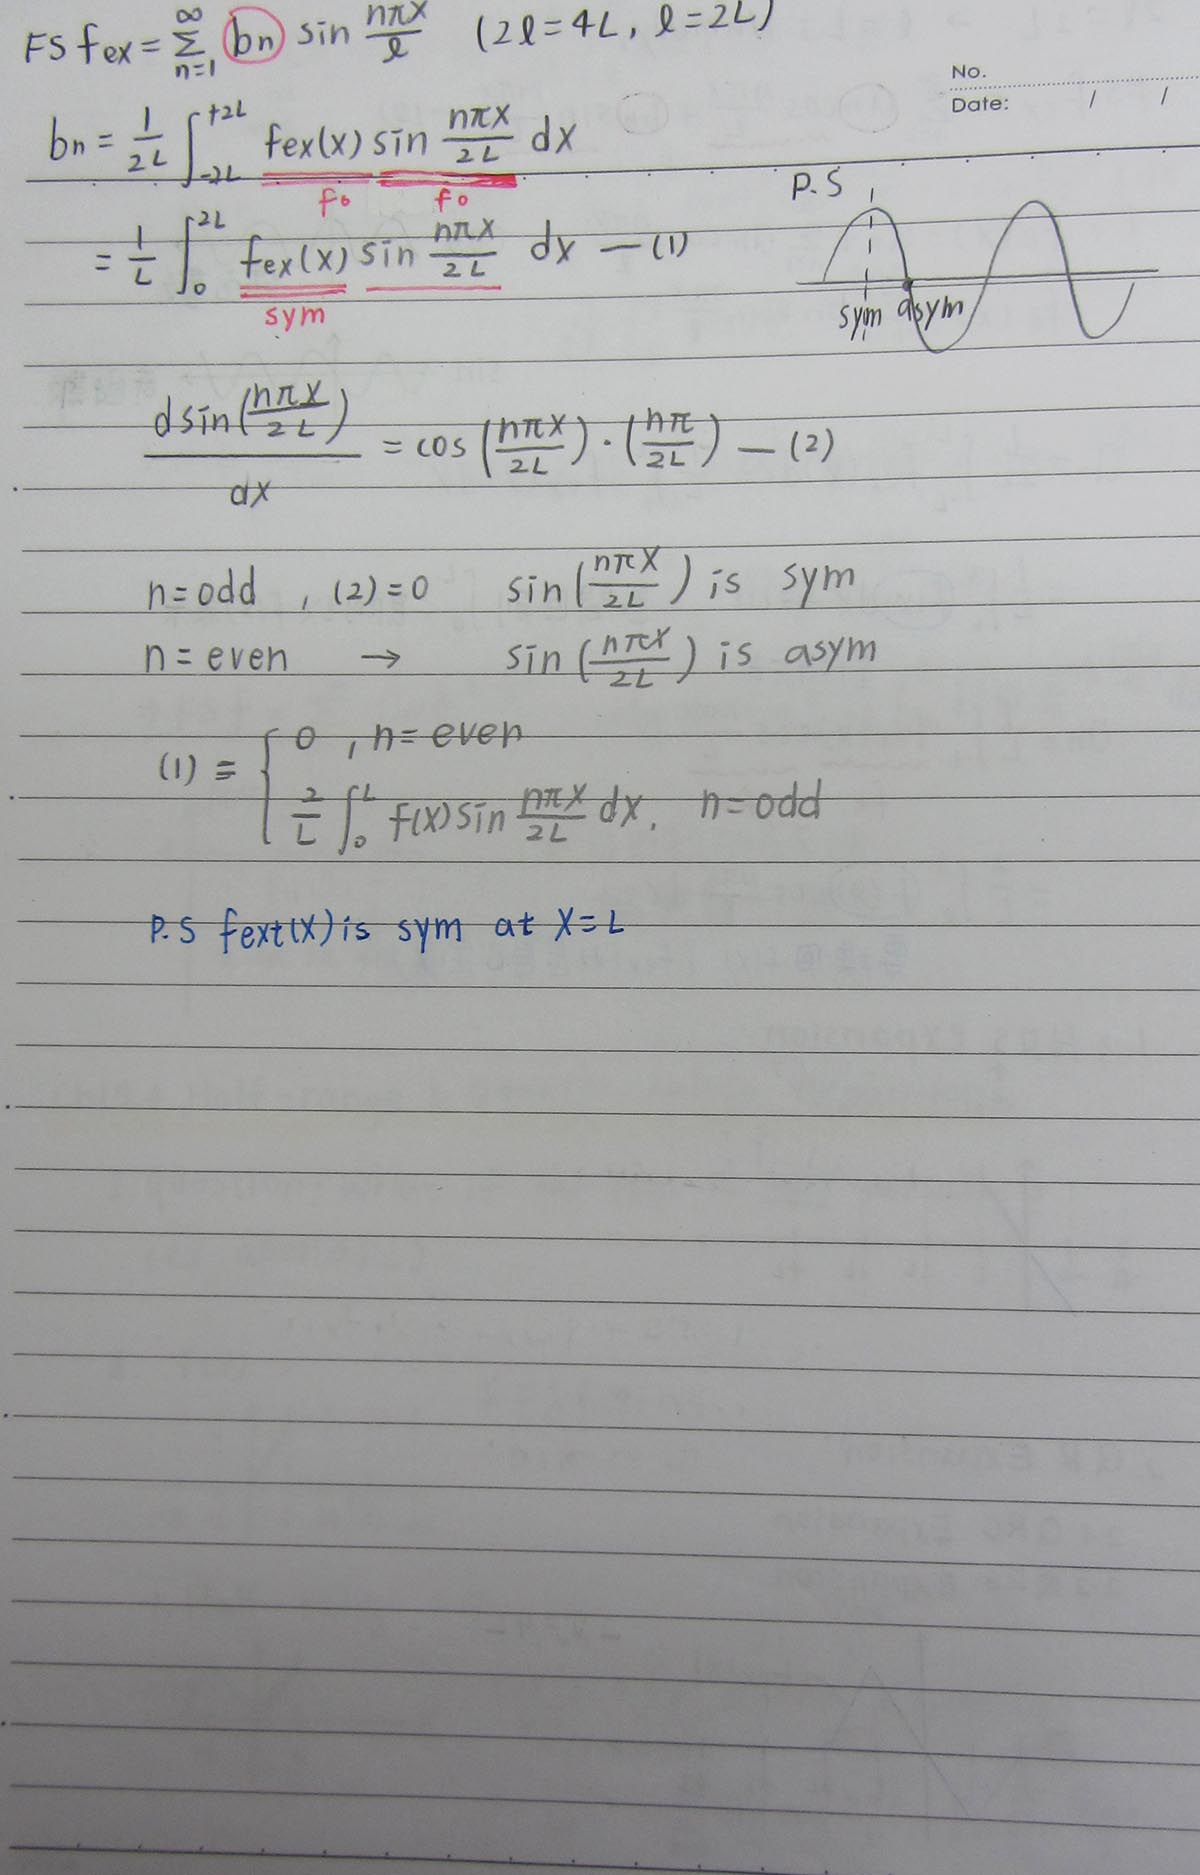 FS fex = ∞Σn=1 bn sin nπx/l (2l=4L, l=2L)
No.
Date: / /
bn = 1/2L ∫-2L +2L fex(x) sin nπx/2L dx
fo fo
P.S
= 1/L ∫0 2L fex(x) sin nπx/2L dx — (1)
sym
sym asym
dsin(nπx/2L)/dx = cos(nπx/2L)·(nπ/2L) — (2)
n=odd , (2)=0 sin(nπx/2L) is sym
n=even → sin(nπx/2L) is asym
(1) = { 0 , n=even
2/L ∫0 L f(x)sin nπx/2L dx, n=odd
P.S fext(x) is sym at x=L